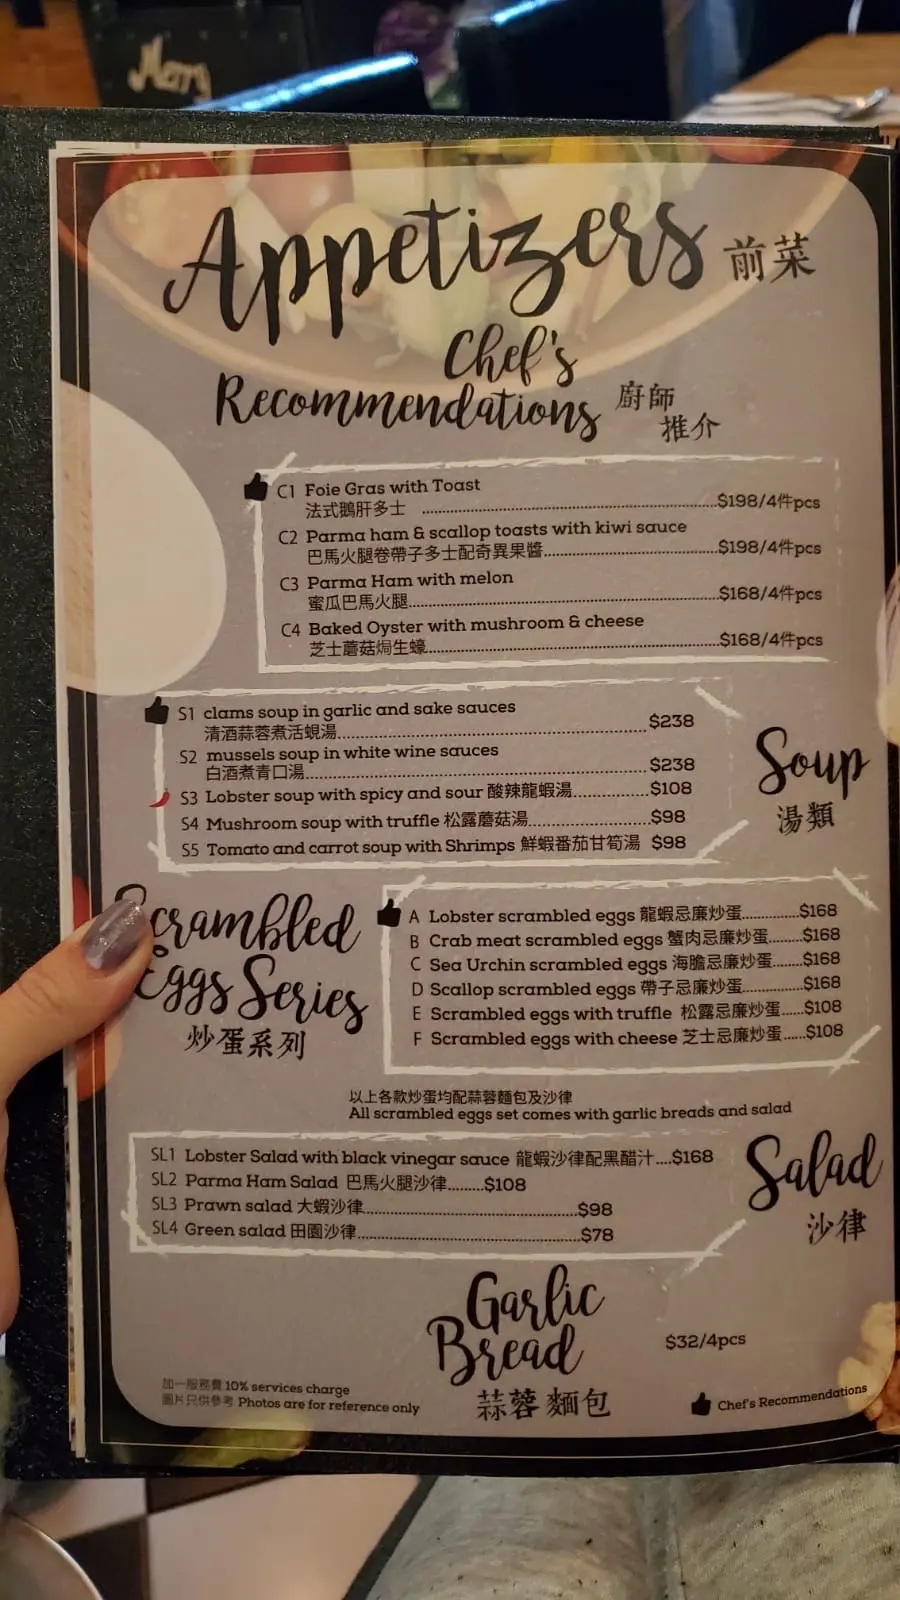 Merry
Appetizers 前菜
Chef's
Recommendations 廚師
推介
C1 Foie Gras with Toast
法式鵝肝多士 ........$198/4件pcs
C2 Parma ham & scallop toasts with kiwi sauce
巴馬火腿卷帶子多士配奇異果醬........$198/4件pcs
C3 Parma Ham with melon
蜜瓜巴馬火腿........$168/4件pcs
C4 Baked Oyster with mushroom & cheese
芝士蘑菇焗生蠔........$168/4件pcs
S1 clams soup in garlic and sake sauces
清酒蒜蓉煮活蜆湯........$238
S2 mussels soup in white wine sauces
白酒煮青口湯........$238
S3 Lobster soup with spicy and sour 酸辣龍蝦湯........$108
S4 Mushroom soup with truffle 松露蘑菇湯........$98
S5 Tomato and carrot soup with Shrimps 鮮蝦番茄甘筍湯 $98
Soup
湯類
Scrambled
Eggs Series
炒蛋系列
A Lobster scrambled eggs 龍蝦忌廉炒蛋........$168
B Crab meat scrambled eggs 蟹肉忌廉炒蛋........$168
C Sea Urchin scrambled eggs 海膽忌廉炒蛋........$168
D Scallop scrambled eggs 帶子忌廉炒蛋........$168
E Scrambled eggs with truffle 松露忌廉炒蛋......$108
F Scrambled eggs with cheese 芝士忌廉炒蛋......$108
以上各款炒蛋均配蒜蓉麵包及沙律
All scrambled eggs set comes with garlic breads and salad
SL1 Lobster Salad with black vinegar sauce 龍蝦沙律配黑醋汁....$168
SL2 Parma Ham Salad 巴馬火腿沙律........$108
SL3 Prawn salad 大蝦沙律........$98
SL4 Green salad 田園沙律........$78
Salad
沙律
Garlic
Bread $32/4pcs
蒜蓉麵包
加一服務費 10% services charge
圖片只供參考 Photos are for reference only
Chef's Recommendations